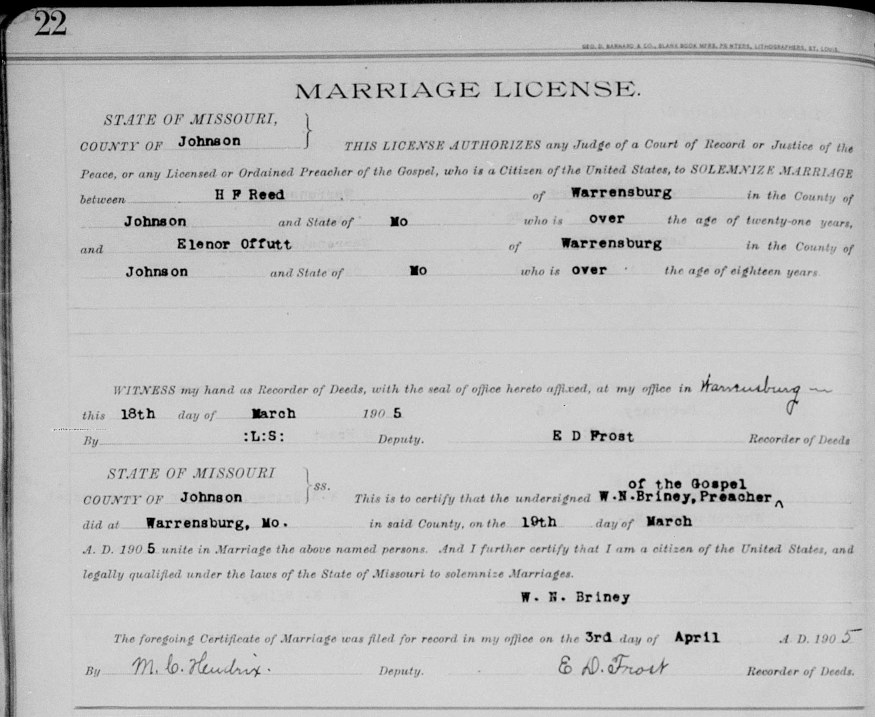 22
GEO. D. BARNARD & CO., BLANK BOOK MFRS, PRINTERS, LITHOGRAPHERS, ST. LOUIS.
MARRIAGE LICENSE.
STATE OF MISSOURI,
COUNTY OF Johnson } THIS LICENSE AUTHORIZES any Judge of a Court of Record or Justice of the
Peace, or any Licensed or Ordained Preacher of the Gospel, who is a Citizen of the United States, to SOLEMNIZE MARRIAGE
between H F Reed of Warrensburg in the County of
Johnson and State of Mo who is over the age of twenty-one years,
and Elenor Offutt of Warrensburg in the County of
Johnson and State of Mo who is over the age of eighteen years
WITNESS my hand as Recorder of Deeds, with the seal of office hereto affixed, at my office in Warrensburg
this 18th day of March 190 5
By :L:S: Deputy. E D Frost Recorder of Deeds
STATE OF MISSOURI
COUNTY OF Johnson } ss. This is to certify that the undersigned W.N.Briney, Preacher ^ of the Gospel
did at Warrensburg, Mo. in said County, on the 19th day of March
A. D. 190 5 unite in Marriage the above named persons. And I further certify that I am a citizen of the United States, and
legally qualified under the laws of the State of Missouri to solemnize Marriages.
W. N. Briney
The foregoing Certificate of Marriage was filed for record in my office on the 3rd day of April A. D. 190 5
By M. C. Hendrix. Deputy. E D. Frost Recorder of Deeds.